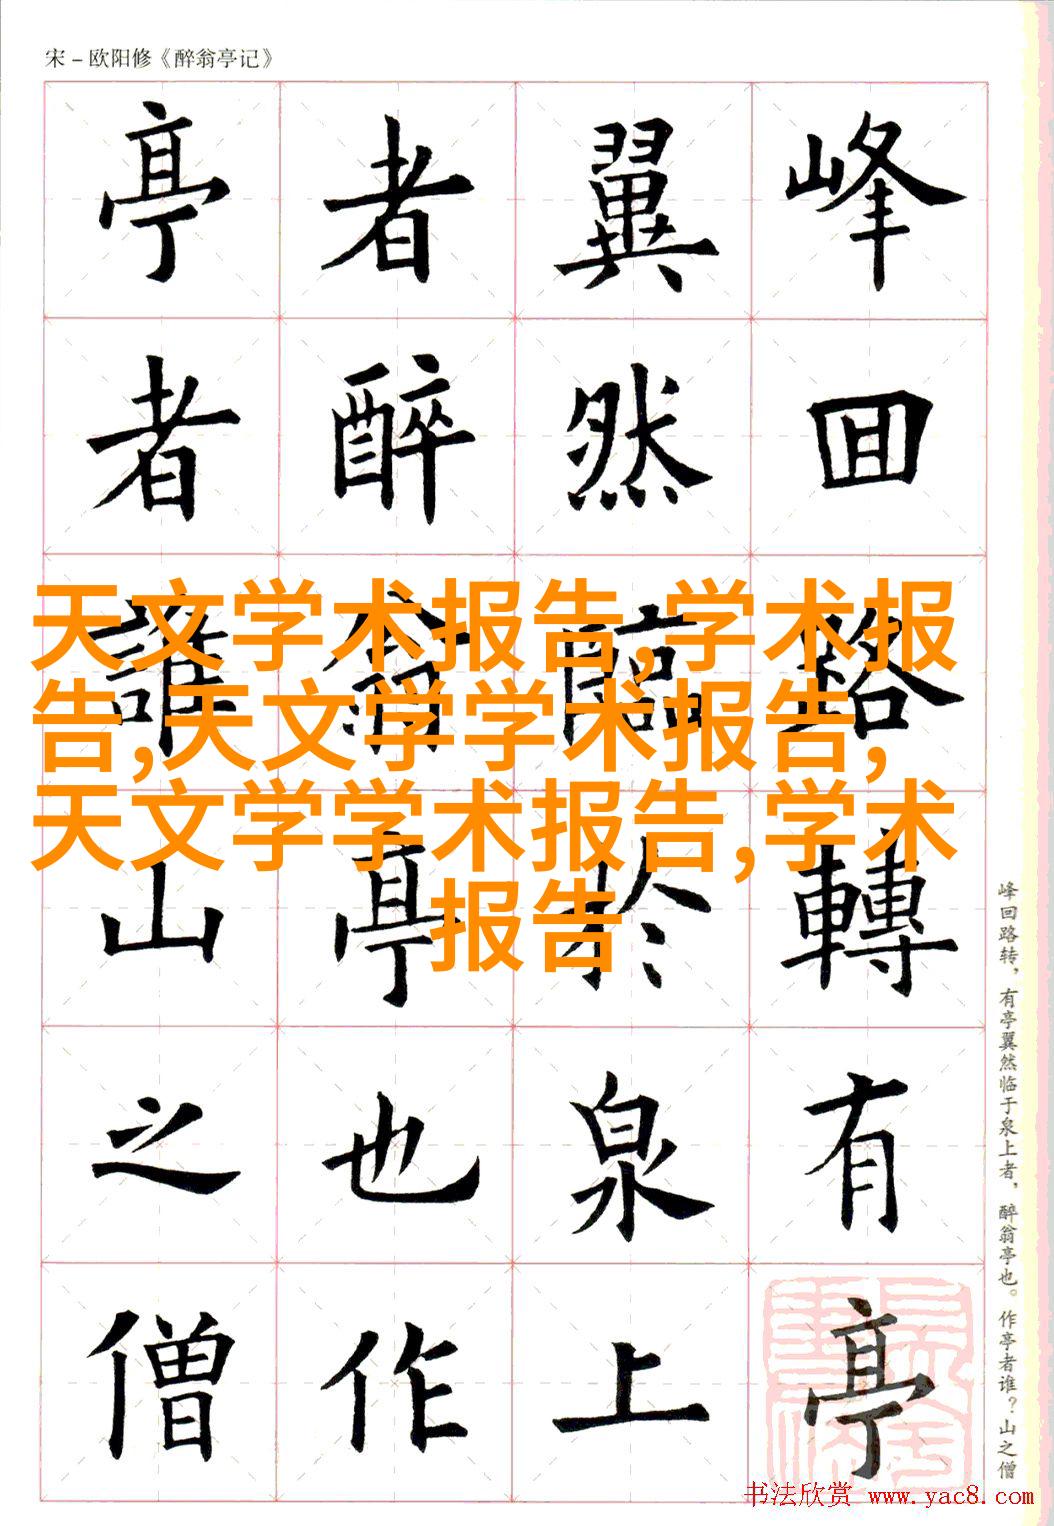 宋－欧阳修《醉翁亭记》
峰囬路轉有亭
翼然臨於泉上
者醉翁亭也作
亭者誰山之僧
天文学术报告,学术报
告,天文学学术报告,
天文学学术报告,学术
报告
峰回路转，有亭翼然临于泉上者，醉翁亭也。作亭者谁？山之僧
书法欣赏 www.yac8.com